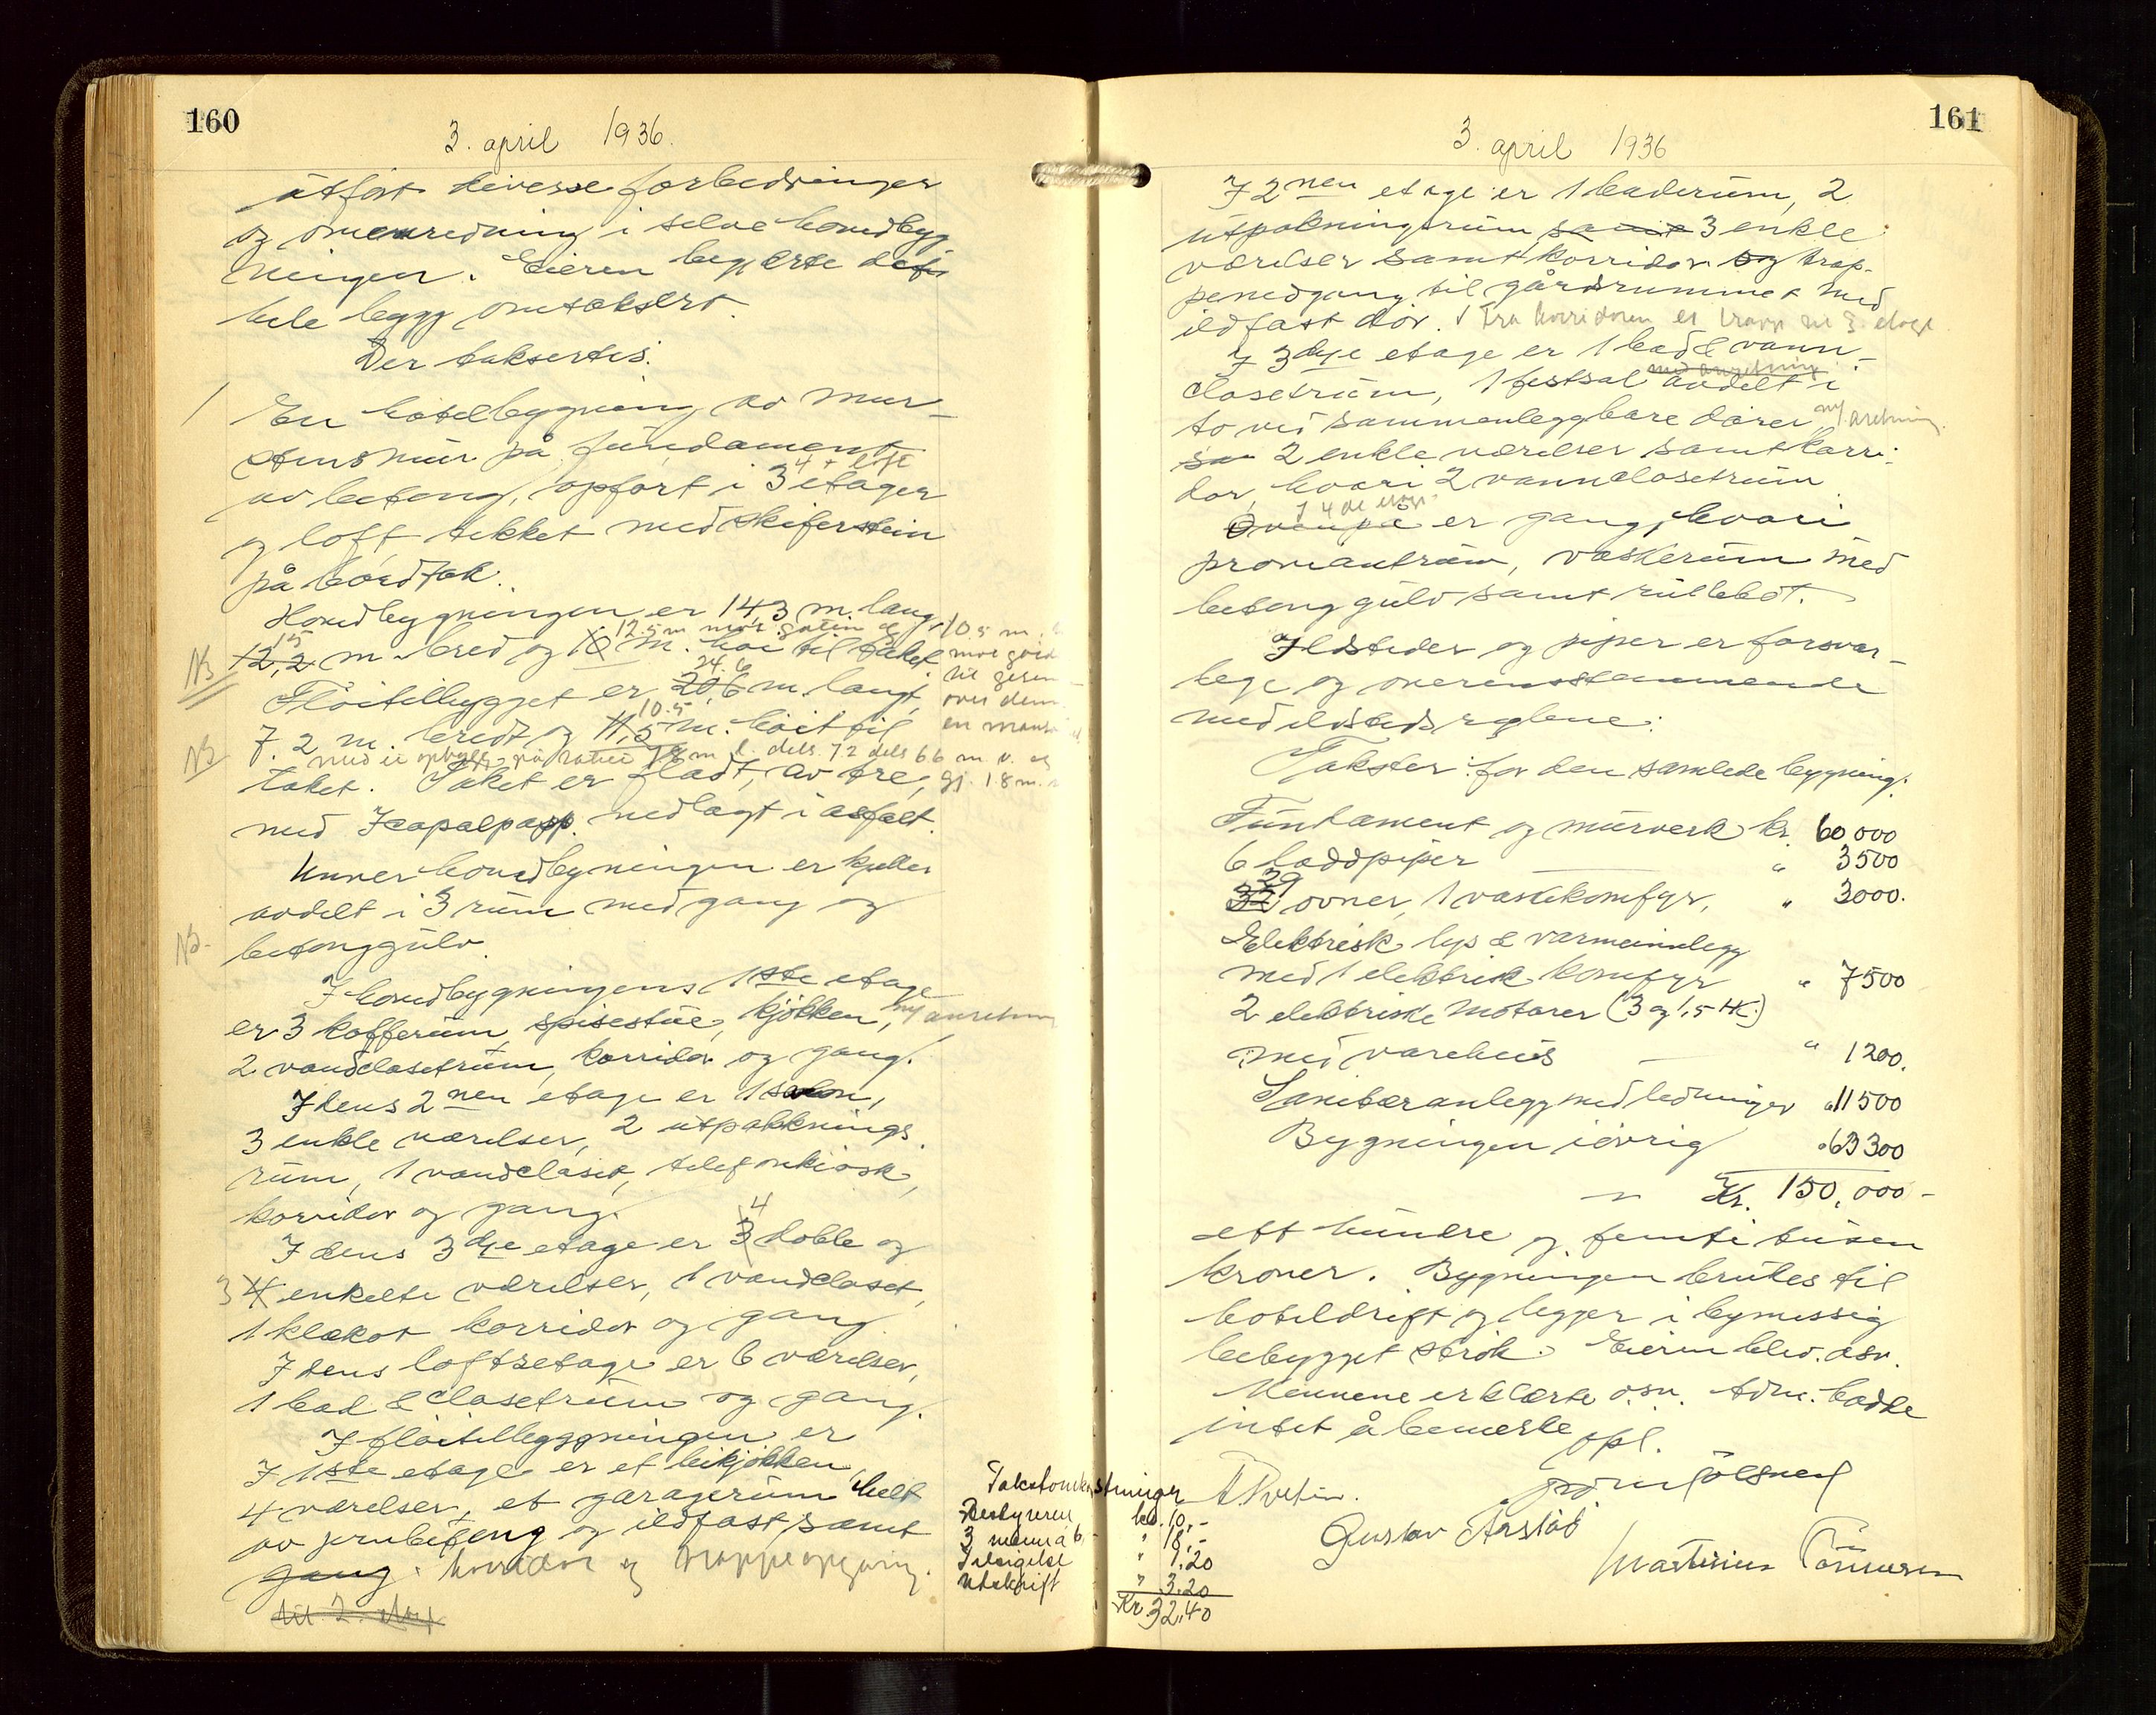 160
3. april 1936.
utført diverse forbedringer
og omenredning i selve hovedbyg
ningen. Eieren begjærte det
hele bygg omtaksert.
Der taksertes:
1 En hotelbygning av mur-
stensmur på fundament
4 + loft
av betong, opført i 3 etager
og loft tekket med skiferstein
på bordtak.
Hovedbygningen er 14,3 m. lang
15 12.5 m mot gaten og 10.5 m.
NB 12,2 m. bred og 10 m. høi til taket mot gård
24.6
Fløitilbygget er 20,6 m. langt, over den
10.5
7.2 m. bredt og 11,5 m. høit til
NB med et opbygg på 7.2 dels 6.6 m. b. og
taket. Taket er fladt, av tre, gj. 1.8 m.
med Icopalpapp nedlagt i asfalt.
Under hovedbygningen er kjeller
avdelt i 3 rum med gang og
NB. betonggulv.
I hovedbygningens 1ste etage
er 3 kafferum, spisestue, kjøkken, m/ anretning
2 vandclosetrum, korridor og gang.
I dens 2nen etage er 1 salon,
3 enkle værelser, 2 utpakknings
rum, 1 vandcloset, telefonkiosk,
korridor og gang.
4
I dens 3dje etage er 3 doble og
3 4 enkelte værelser, 1 vandcloset,
1 klækot korridor og gang.
I dens loftsetage er 6 værelser,
1 bad & closetrum og gang.
I fløitilbyggningen er
I 1ste etage er et bikjøkken,
4 værelser, et garagerum helt
av jernbetong og ildfast samt
gang. korridor og trappeopgang.
til 2. etag
Takstomkostninger
Bestyreren kr. 10,-
3 menn á 6,- " 18,-
Tilsigelse " 1.20
Utskrift " 3.20
Kr. 32,40
161
3. april 1936
I 2nen etage er 1 baderum, 2
utpakningsrum, samt 3 enkle
værelser samt korridor og trap-
penedgang til gårdsrummet med
ildfast dør. Fra korridoren er trapp til 3. etage
I 3dje etage er 1 bad & vann-
med anretning
closetrum, 1 festsal avdelt i
to ved sammenleggbare dører, m/ anretning.
sam 2 enkle værelser samt korri-
dor, hvori 2 vannclosetrum
I 4de etage
Ovenpå er gang, hvori
proviantrum, vaskerum med
betonggulv samt rullebot.
Ildsteder og piper er forsvar-
lege og overensstemmende
med ildstedsreglene.
Takster: for den samlede bygning:
Fundament og murverk kr. 60 000
6 loddpiper " 3500
29
32 ovner, 1 vaskekomfyr, " 3000.
Elektrisk lys & varmeinnlegg
med 1 elektrisk komfyr " 7500
2 elektriske motorer (3 og 1,5 HK.)
med vareheis " 1200.
Sanitæranlegg med ledninger " 11500
Bygningen iøvrig " 63300
Kr. 150,000 -
ett hundre og femti tusen
kroner. Bygningen brukes til
hoteldrift og legger i bymessig
bebygget strøk. Eieren blev. osv.
Mennene erklærte o.s.v. hadde
intet å bemerke
opl.
Gustav Årstad
Martinius Tönnesen